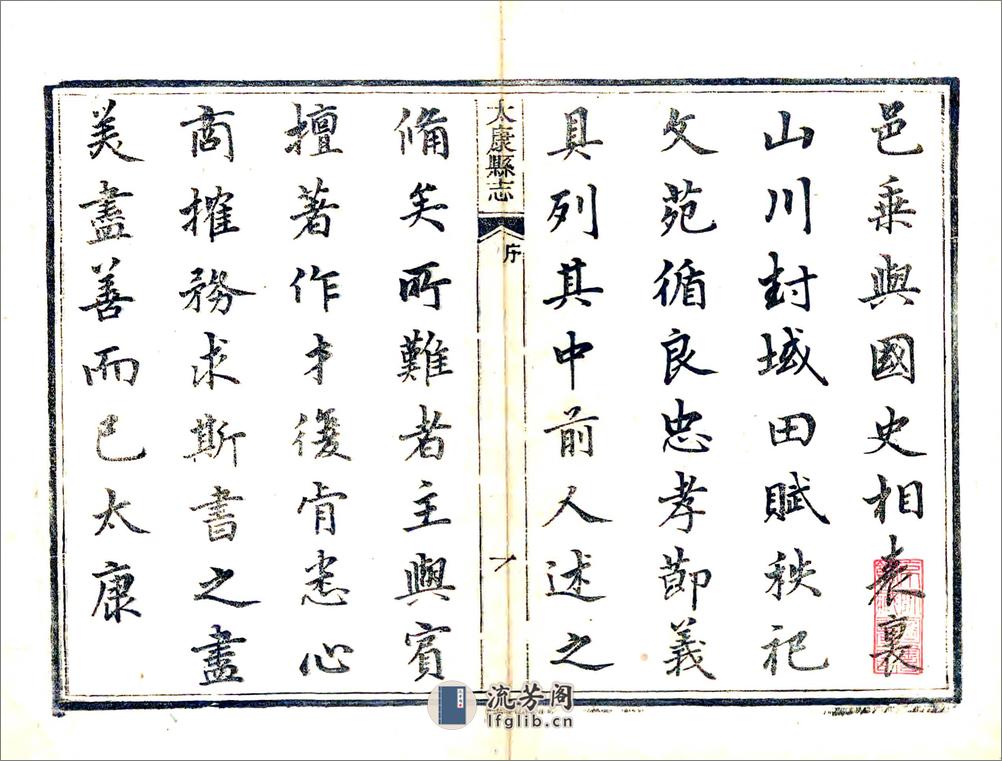 邑乗與國史相表裏
山川封域田賦秩祀
文苑循良忠孝節義
具列其中前人述之
太康縣志
序
一
備矣所難者主與賓
擅著作才復肯悉心
商搉務求斯書之盡
美盡善而已太康
流芳阁
lfglib.cn